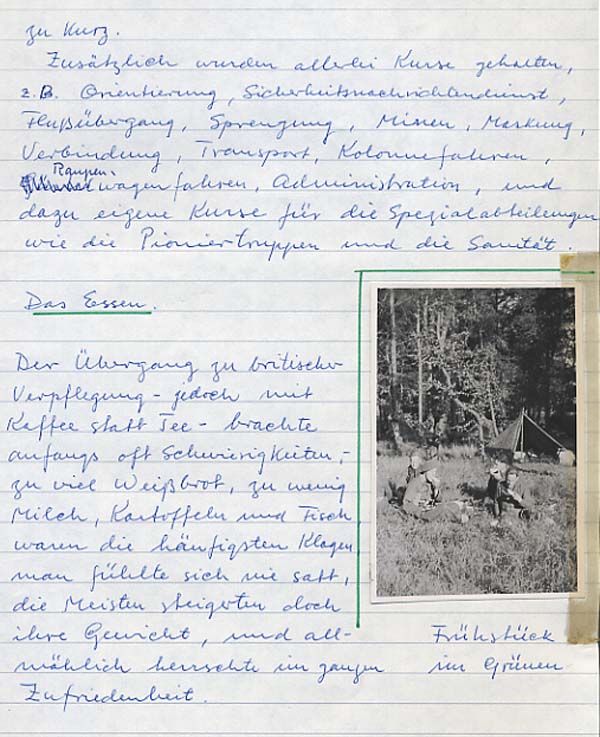 zu kurz.
Zusätzlich wurden allerlei Kurse gehalten,
z.B. Orientierung, Sicherheitsnachrichtendienst,
Flußübergang, Sprengung, Minen, Markung,
Verbindung, Transport, Kolonnefahren,
Raupen-
wagenfahren, Administration, und
dazu eigene Kurse für die Spezialabteilungen
wie die Pioniertruppen und die Sanität.
Das Essen.
Der Übergang zu britischer
Verpflegung - jedoch mit
Kaffee statt Tee - brachte
anfangs oft Schwierigkeiten,-
zu viel Weißbrot, zu wenig
Milch, Kartoffeln und Fisch
waren die häufigsten Klagen
man fühlte sich nie satt,
die Meisten steigerten doch
ihre Gewicht, und all-
mählich herrschte im ganzen
Zufriedenheit.
Frühstück
im Grünen